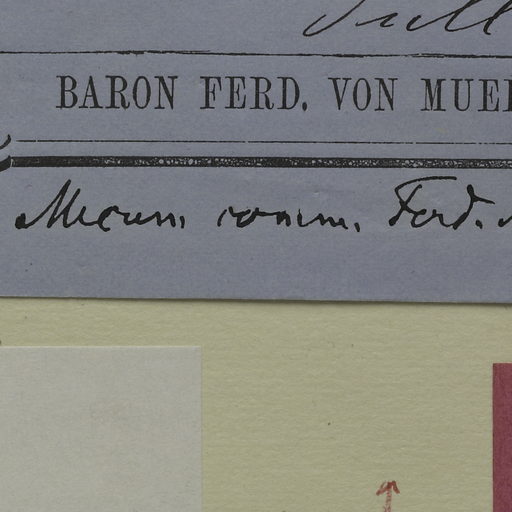 BARON FERD. VON MUE
Mecum comm. Ferd.